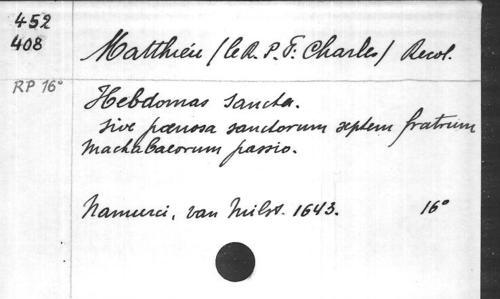 452
408
Matthieu (le R. P. F. Charles) Recol.
RP 16°
Hebdomas Sancta.
sive poenosa sanctorum septem fratrum
Machabaeorum passio.
Namurci, van Milst. 1643. 16°